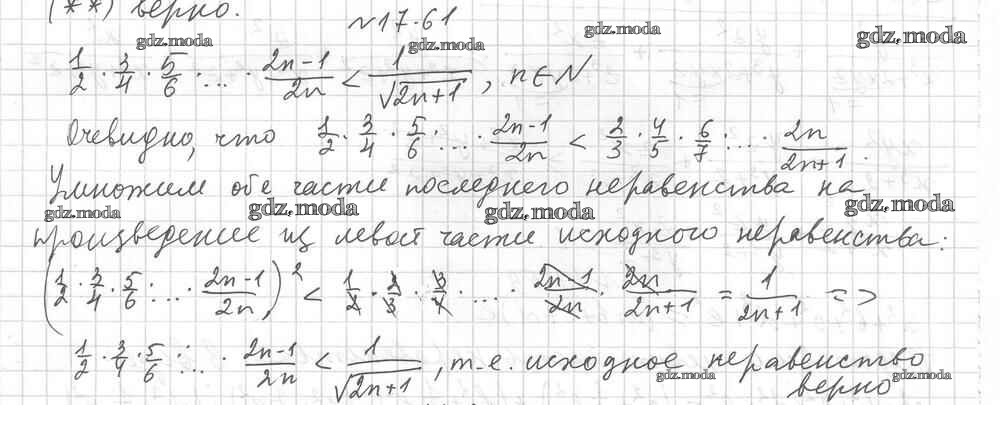 (**) верно.
№17.61
gdz.moda gdz.moda gdz.moda gdz.moda
1/2 · 3/4 · 5/6 · ... · (2n-1)/2n < 1/√(2n+1), n∈N
Очевидно, что 1/2 · 3/4 · 5/6 · ... · (2n-1)/2n < 2/3 · 4/5 · 6/7 · ... · 2n/(2n+1).
Умножим обе части последнего неравенства на
gdz.moda gdz.moda gdz.moda gdz.moda
произведение из левой части исходного неравенства:
(1/2 · 3/4 · 5/6 · ... · (2n-1)/2n)² < 1/2 · 2/3 · 3/4 · ... · (2n-1)/2n · 2n/(2n+1) = 1/(2n+1) =>
1/2 · 3/4 · 5/6 · ... · (2n-1)/2n < 1/√(2n+1), т.е. исходное неравенство
gdz.moda gdz.moda
верно